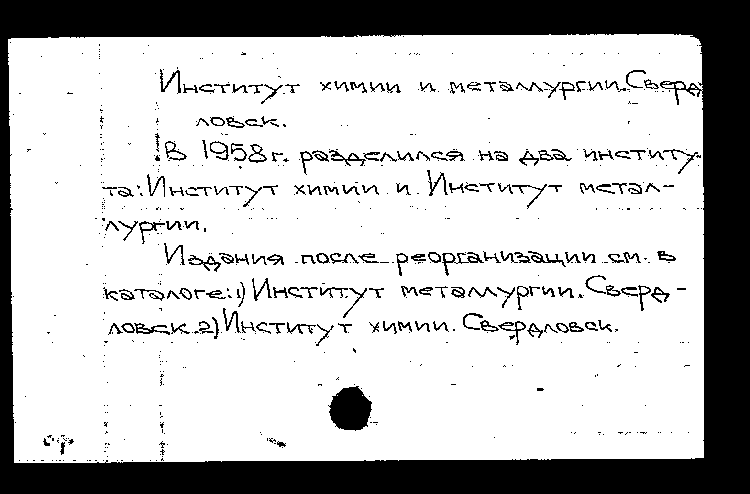 Институт химии и металлургии. Сверд-
ловск.
В 1958 г. разделился на два институ-
та: Институт химии и Институт метал-
лургии.
Издания после реорганизации см. в
каталоге: 1) Институт металлургии. Сверд-
ловск. 2) Институт химии. Свердловск.
ор